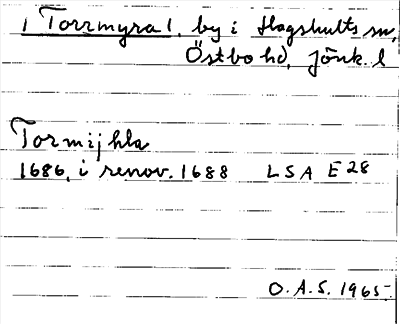 1 Torrmyra 1, by i Hagshults sn,
Östbo hd, Jönk. l
Tormijhla
1686, i renov. 1688 LSA E 28
O.A.S. 1965.